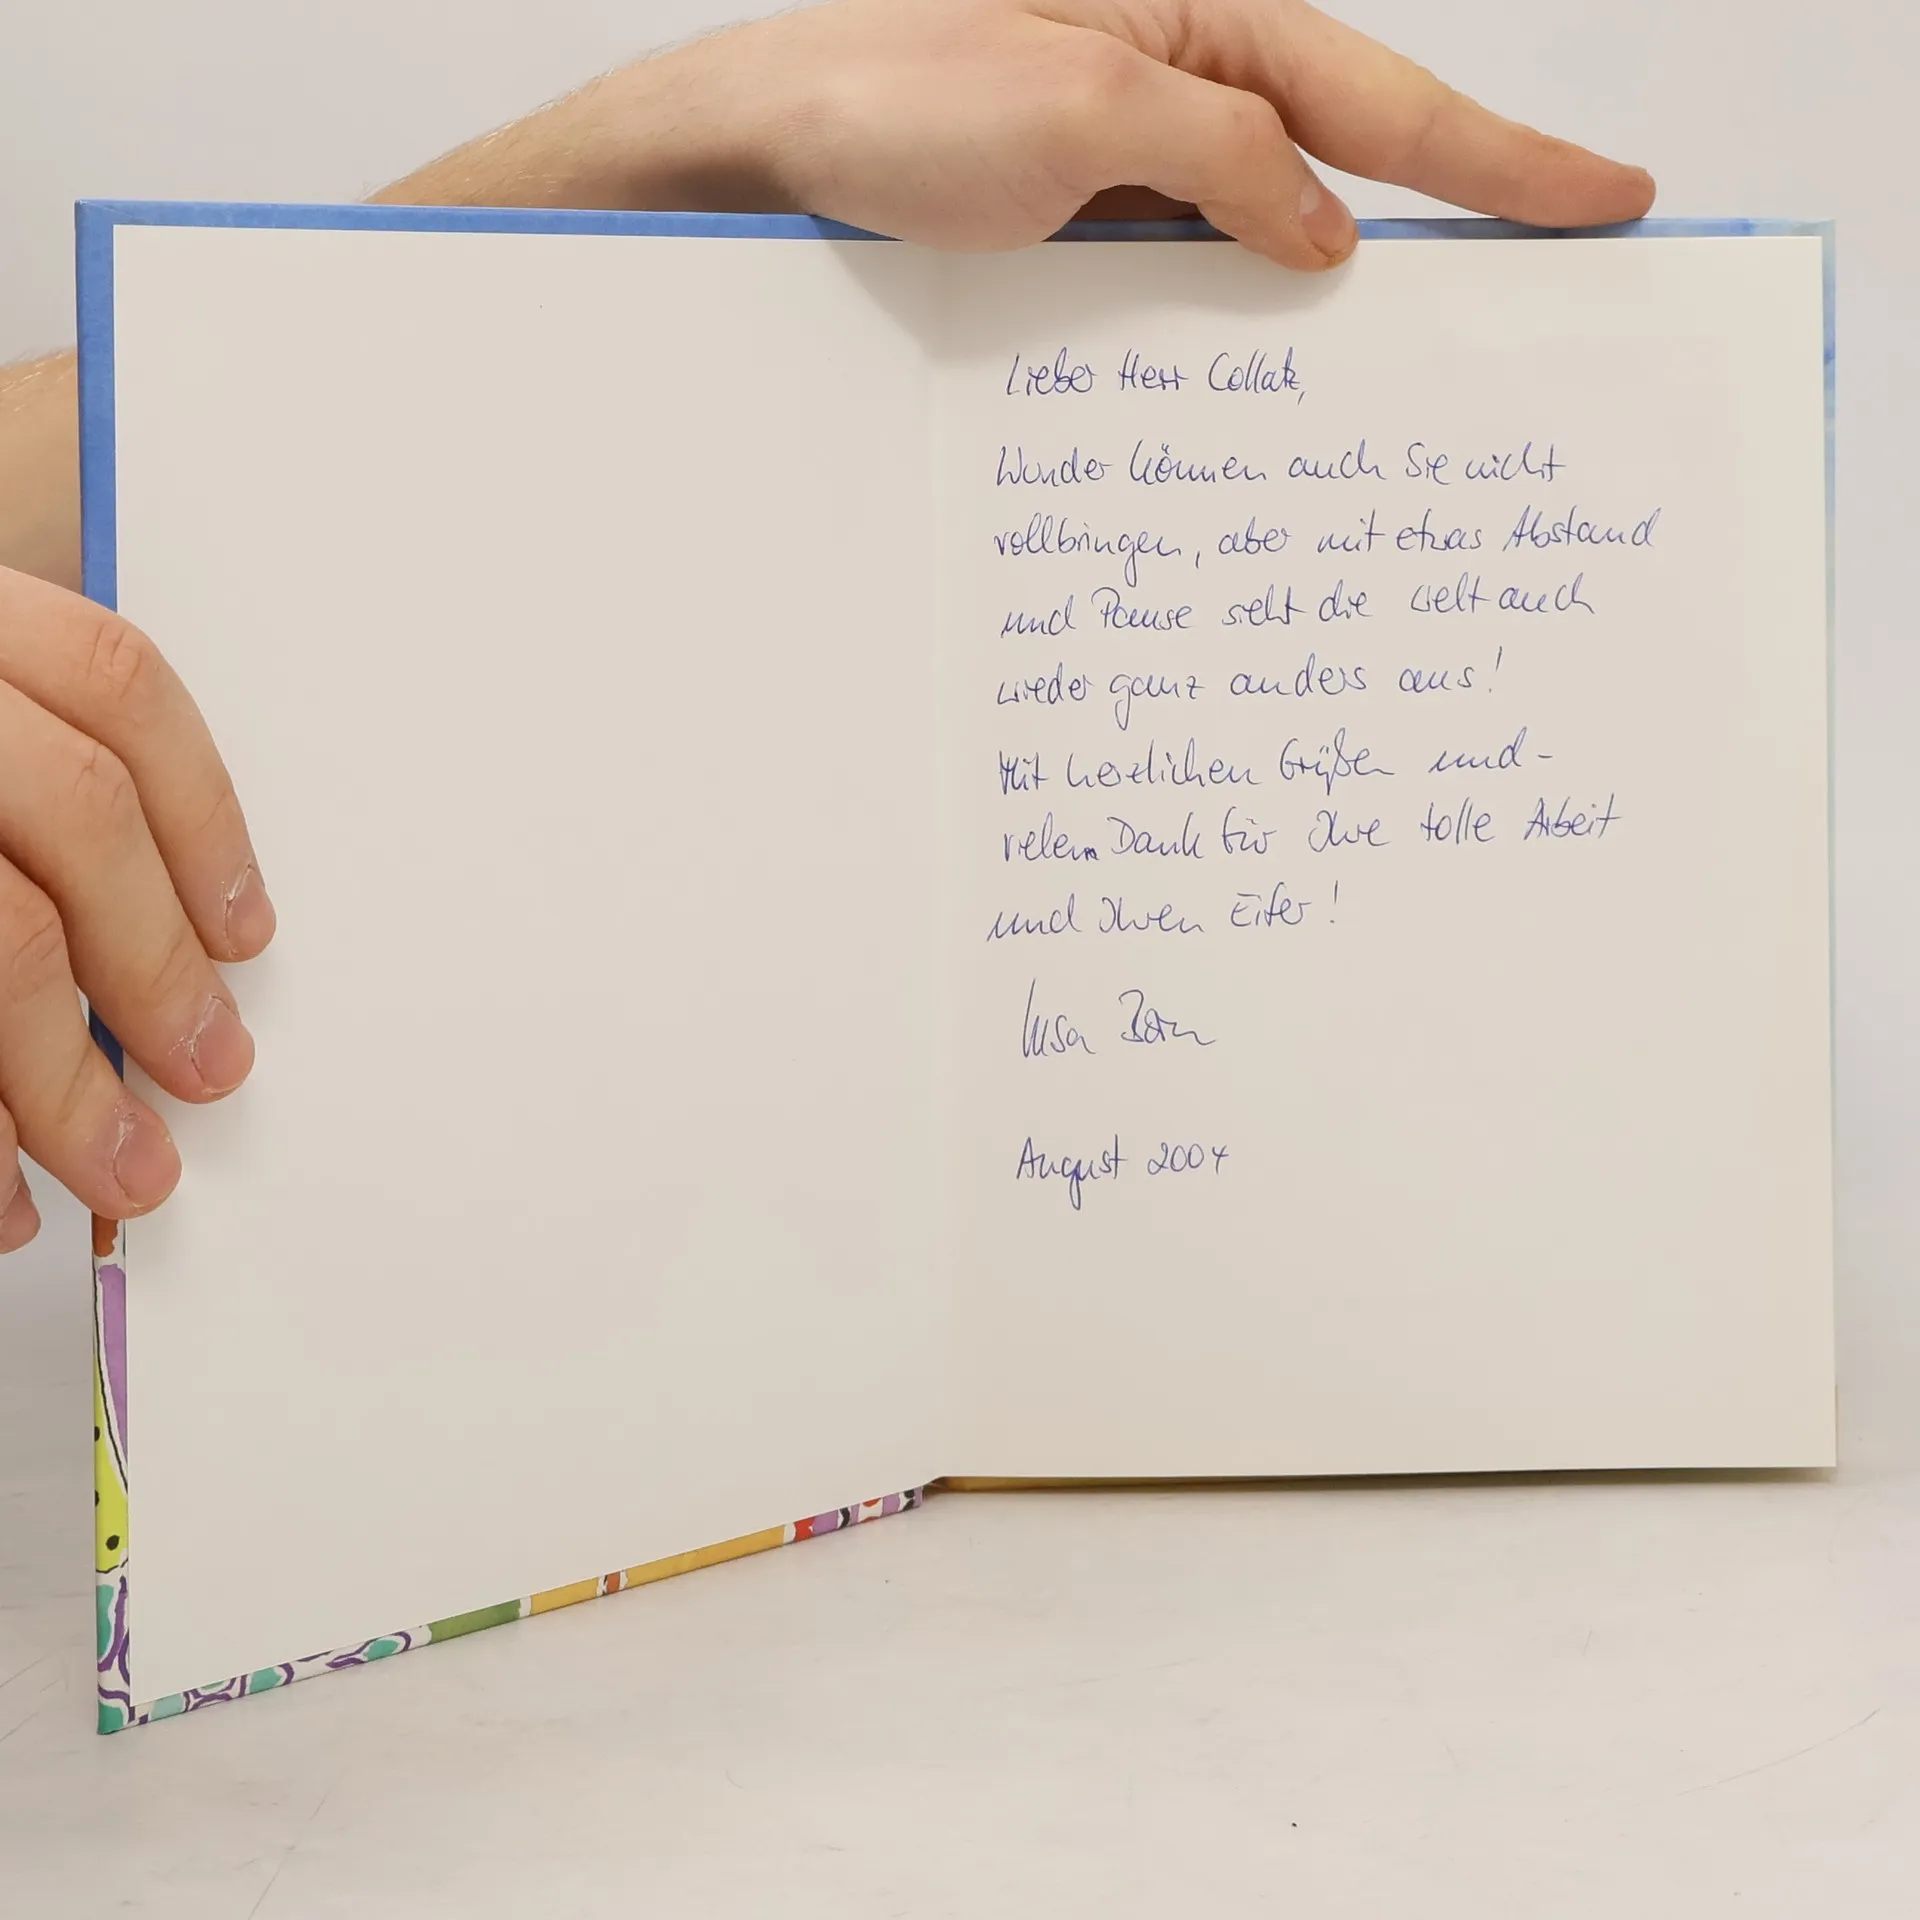 Lieber Herr Collatz,
Wunder können auch Sie nicht
vollbringen, aber mit etwas Abstand
und Pause sieht die Welt auch
wieder ganz anders aus!
Mit herzlichen Grüßen und -
vielem Dank für Ihre tolle Arbeit
und Ihren Eifer!
August 2004